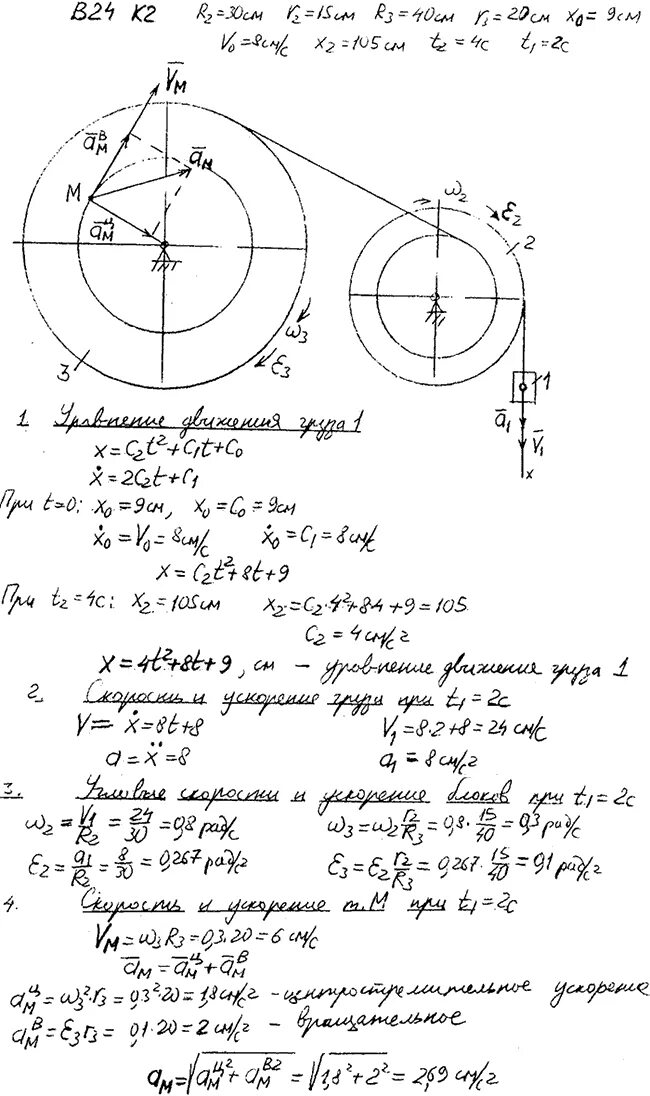 В24 К2 R2=30см r2=15см R3=40см r3=20см x0=9см
V0=8см/с x2=105см t2=4с t1=2с
V̅M
a̅Mᴮ
a̅M
M
a̅Mц
ω2
ε2
2
ω3
ε3
3
1
a̅1
V̅1
x
1. Уравнение движения груза 1
x=C2t²+C1t+C0
ẋ=2C2t+C1
При t=0: x0=9см, x0=C0=9см
ẋ0=V0=8см/с ẋ0=C1=8см/с
x=C2t²+8t+9
При t2=4с: x2=105см x2=C2·4²+8·4+9=105
C2=4см/с²
x=4t²+8t+9, см – уравнение движения груза 1
2. Скорость и ускорение груза при t1=2с
V=ẋ=8t+8 V1=8·2+8=24см/с
a=ẍ=8 a1=8см/с²
3. Угловые скорости и ускорение блоков при t1=2с
ω2=V1/R2=24/30=0,8рад/с ω3=ω2 r2/R3=0,8·15/40=0,3рад/с
ε2=a1/R2=8/30=0,267рад/с² ε3=ε2 r2/R3=0,267·15/40=0,1рад/с²
4. Скорость и ускорение т.М при t1=2с
VM=ω3R3=0,3·20=6см/с
a̅M=a̅Mц+a̅Mᴮ
aMц=ω3²·r3=0,3²·20=1,8см/с² -центростремительное ускорение
aMᴮ=ε3r3=0,1·20=2см/с² – вращательное
aM=√(aMц²+aMᴮ²)=√(1,8²+2²)=2,69см/с²